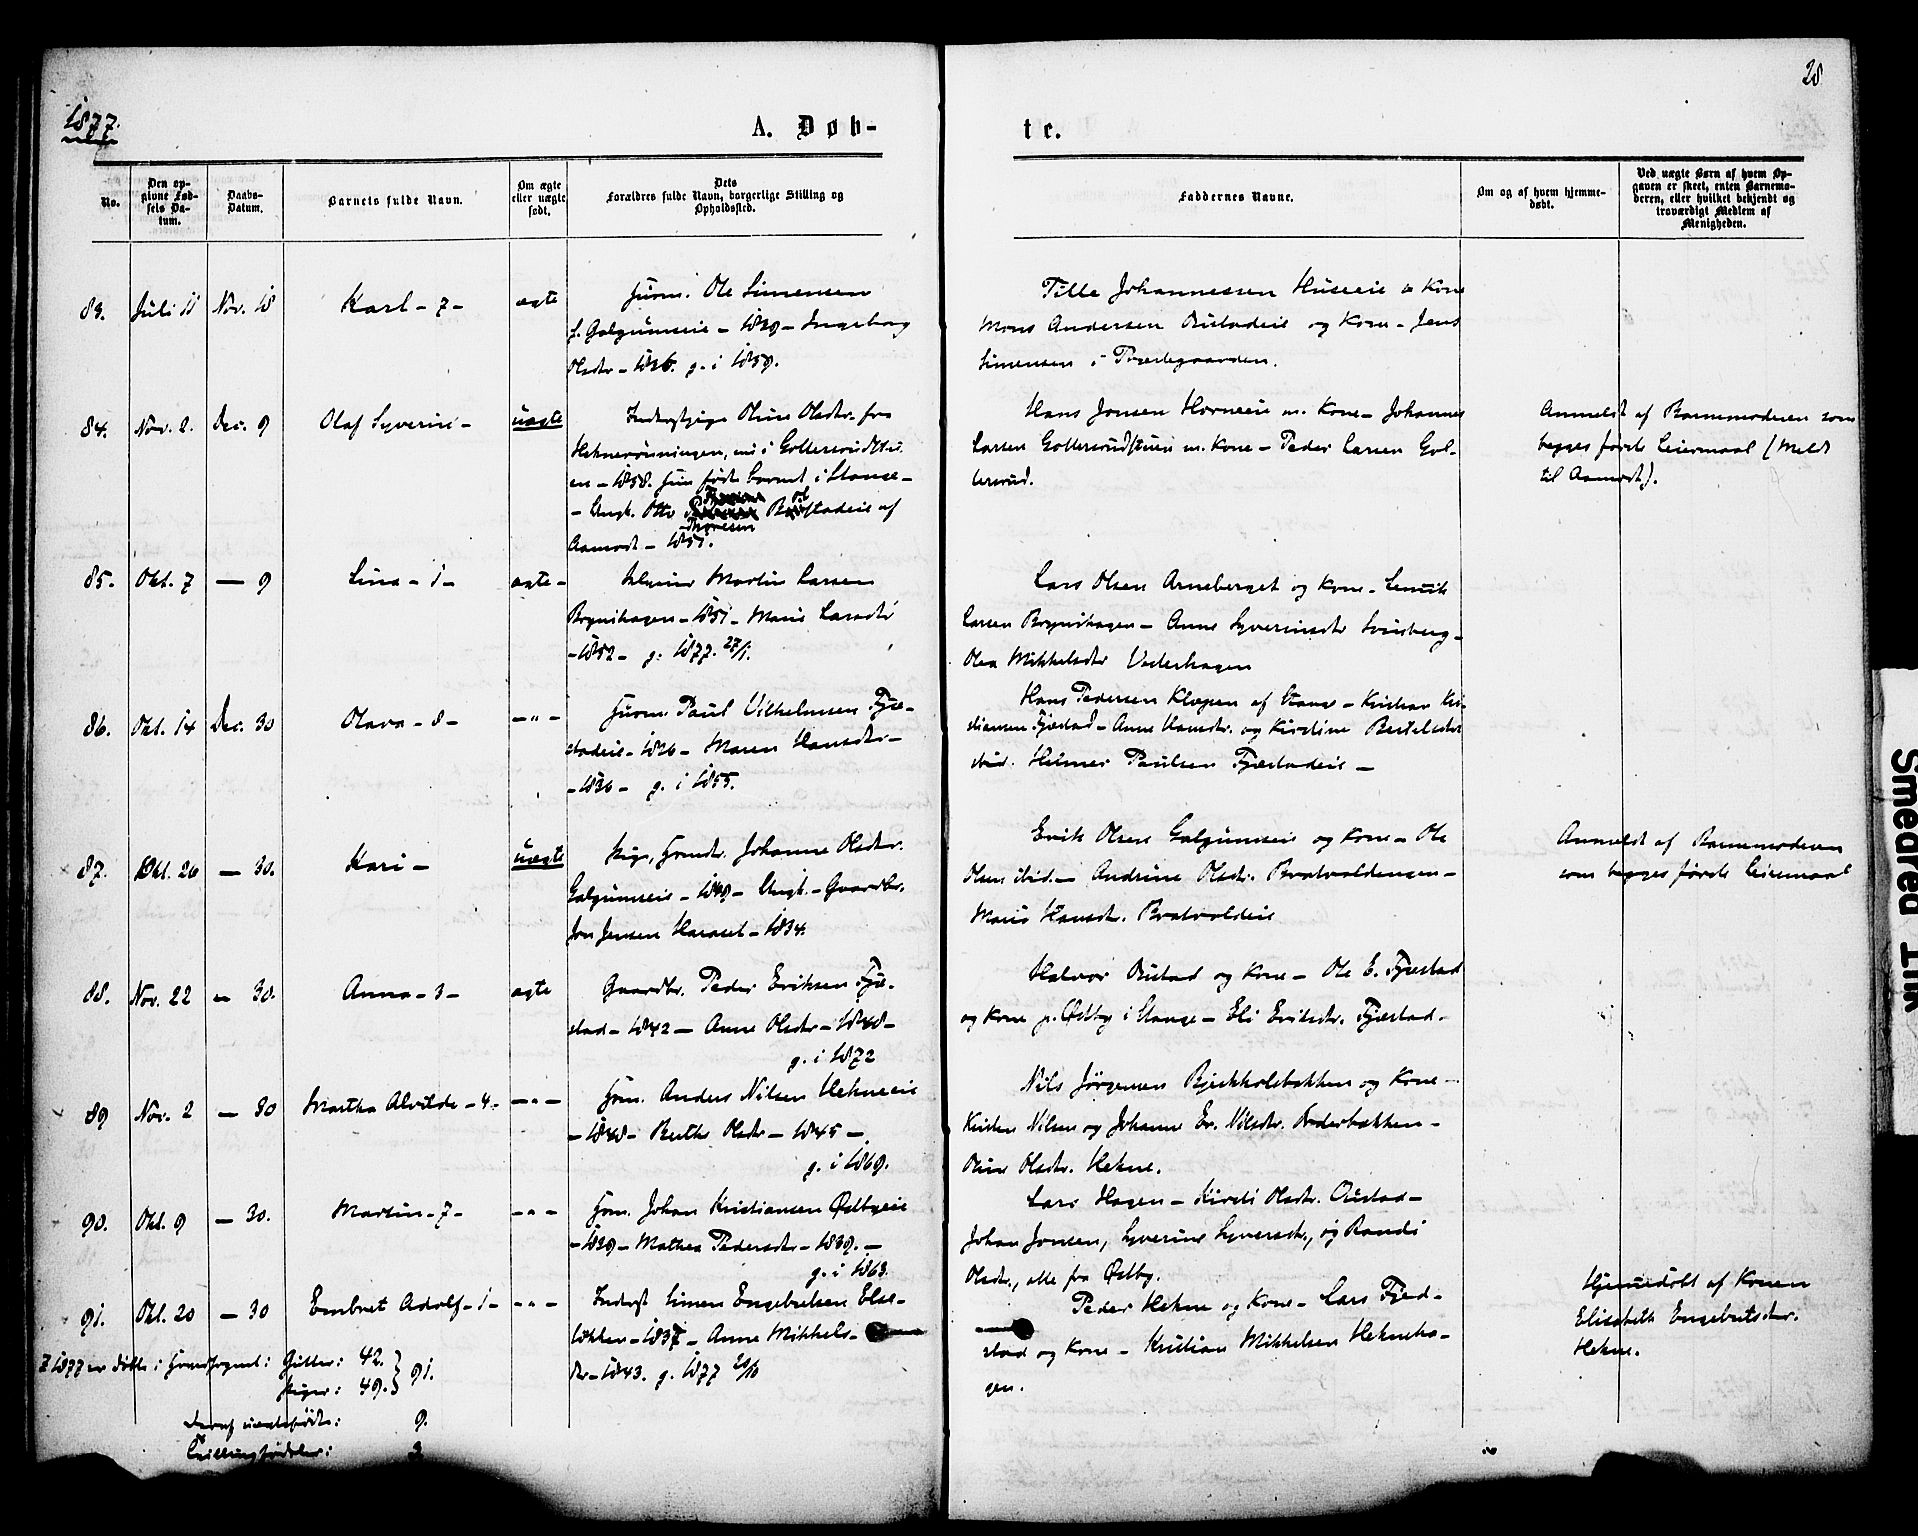 28
1877.
A. Døb-
te.
No.
Den op-
givne Fød-
sels Da-
tum.
Daabs-
Datum.
Barnets fulde Navn.
Om ægte
eller uægte
født.
Dets
Forældres fulde Navn, borgerlige Stilling og
Opholdssted.
Faddernes Navne.
Om og af hvem hjemme-
døbt.
Ved uægte Børn af hvem Op-
gaven er skeet, enten Barnemo-
deren, eller hvilket bekjendt og
troværdigt Medlem af
Menigheden.
83. Juli 11 Nov. 18 Karl - 7 - ægte
Huum. Ole Simensen
f. Galgumseie - 1829 - Ingeborg
Olsdtr - 1836. g. i 1859.
Tille Johannessen Huseeie & Kone
Mons Andersen Rustadeie og Kone - Jens
Simensen i Præstegaarden.
84. Nov. 2. Dec. 9 Olaf Syverin - uægte
Inderstpige Oline Olsdtr. fra
Heknerønningen, nu i Gollersrudstu-
en - 1858. Hun fødte barnet i Stange -
- Ungk. Otto Thoresen Rustadeie af
Aamodt - 1851.
Hans Jonsen Horneeie m. Kone - Johannes
Larsen Gollersrudstuen m. Kone - Peder Larsen Gol-
lersrud.
Anmeldt af Barnemoderen som
begges første Leiermaal (Meldt
til Aamodt).
85. Okt. 7 — 9 Lina - 1 - ægte -
Martin Larsen
Brynihagen - 1851 - Marie Larsdtr
- 1852 - g. 1877. 27/1.
Lars Olsen Arneberget og Kone -
Larsen Brynihagen - Anne Syverinsdtr Svinsberg -
Olea Mikkelsdtr Vederhagen
86. Okt. 14 Dec. 30 Olava - 8 - - " -
Huum. Paul Vilhelmsen Fjæ-
stadeie - 1826 - Maren Hansdtr -
- 1830 - g. i 1855.
Hans Pedersen Klæpen af Stange - Kristian Kri-
stiansen Fjæstad - Anne Hansdtr. og Kirstine Bertelsdtr
ibid. Helmer Paulsen Fjæstadeie -
87. Okt. 26 — 30. Kari - uægte
Pige, Gomdtr. Johanne Olsdtr.
Galgumseie - 1849 - Ungk. - Gaardbr.
Jon Jensen Haraset - 1834.
Erik Olsen Galgumseie og Kone - Ole
Olsen ibid. - Andrine Olsdtr. Bratvoldengen -
Marie Hansdtr. Bratvoldeie
Anmeldt af Barnemoderen
som begges første Leiermaal
88. Nov. 22 — 30. Anna - 3 - ægte
Gaardbr. Peder Eriksen Fjæ-
stad - 1842 - Anne Olsdtr - 1848 -
g. i 1872
Halvor Rustad og Kone - Ole E. Fjæstad
og Kone p. Østby i Stange - Eli Eriksdtr. Fjæstad -
89 Nov. 2 — 30 Martha Alvilde - 4 - - " -
Huum. Anders Nilsen Hekneeie
- 1848 - Berthe Olsdtr - 1845 -
g. i 1869.
Nils Jørgensen Bjerkholsbakken og Kone -
Kirsten Nilsen og Johanne Er. Nilsdtr. Oderbakken -
Oline Olsdtr. Hekne.
90. Okt. 9 — 30. Martin - 7 - - " -
Huum. Johan Kristiansen Østbyeie
- 1839 - Mathea Pedersdtr - 1839. -
g. i 1863.
Lars Hagen - Kirsti Olsdtr. Rustad -
Johan Jonsen, Syverine Syversdtr., og Randi
Olsdtr., alle fra Østby.
91. Okt. 20 — 30 Embret Adolf - 1 - - " -
Inderst Simen Engebretsen Else-
løkken - 1837 - Anne Mikkels-
dtr - 1843. g. 1877 20/10
Peder Hekne og Kone - Lars Fjæ-
stad og Kone - Kristian Mikkelsen Hekneha-
gen.
Hjemmedøbt af Konen
Elisabeth Engebretsdtr.
Hekne.
I 1877 er døbte i Hovedsognet: Gutter: 42. } 91.
Piger: 49.
Deraf uægtefødte: 9.
Tvillingfødsler: 3
Smedrea Trik